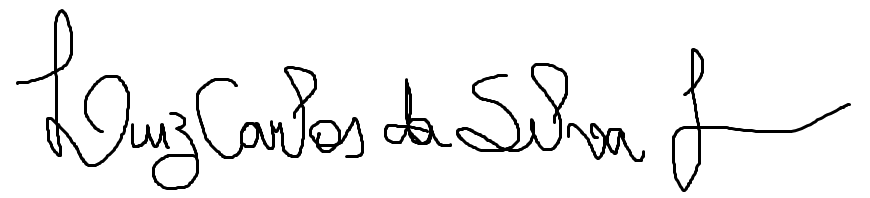 Luiz Carlos da Silva J